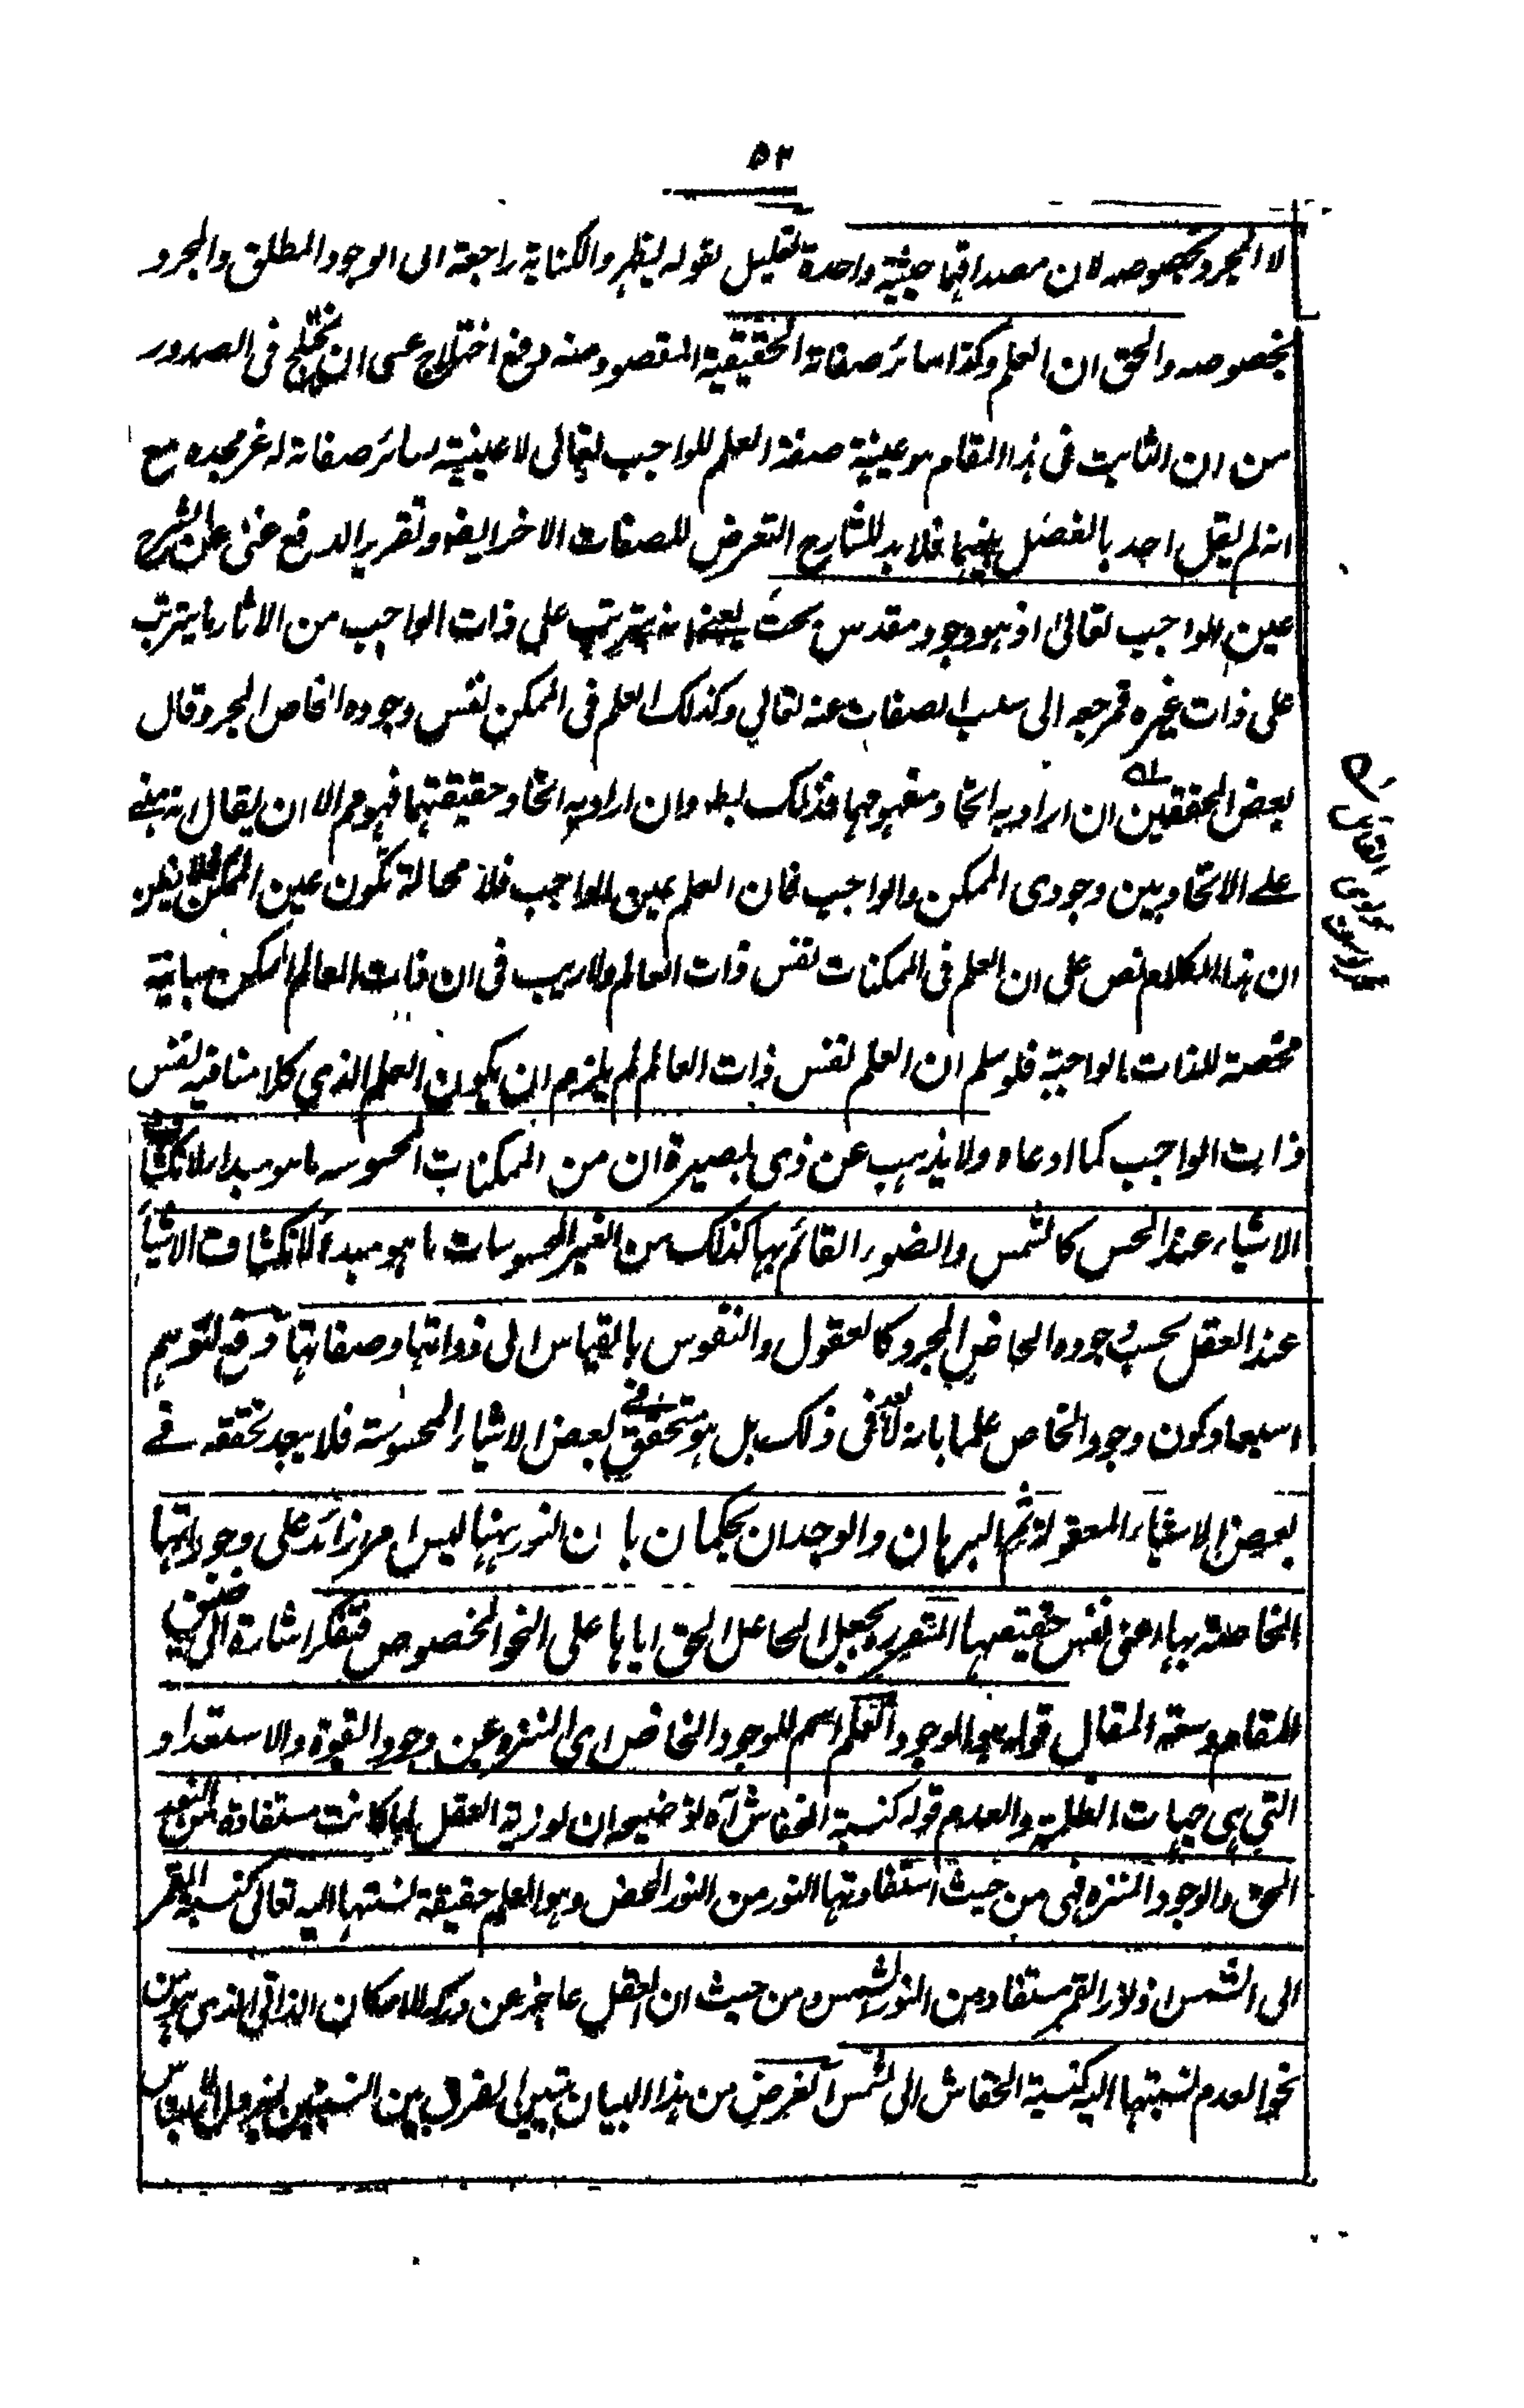 ٥٢
لا المجرد بخصوصه لان مصداقهما حيثية واحدة تعليل لقوله ليظهر والكناية راجعة الى الوجود المطلق والمجرد
بخصوصه والحق ان العلم وكذا سائر صفاته الحقيقية المقصود منه دفع اختلاج عسى ان يختلج فى الصدور
من ان الثابت فى هذا المقام هو عينية صفة العلم للواجب تعالى لا عينية سائر صفاته له عز مجده مع
انه لم يقل احد بالفصل بينهما فلا بد للشارح التعرض للصفات الاخر ايضا وتقرير الدفع غنى عن الشرح
عين الواجب تعالى اذ هو وجود مقدس بحت يعنى انه يترتب على ذات الواجب من الاثار ما يترتب
على ذات غيره فمرجعه الى سلب الصفات عنه تعالى وكذلك العلم فى الممكن نفس وجوده الخاص المجرد قال
بعض المحققين ان اراد به اتحاد مفهومهما فذلك بط وان اراد به اتحاد حقيقتهما فهو مم الا ان يقال انه مبنى
على الاتحاد بين وجودى الممكن والواجب فان العلم عين للواجب فلا محالة تكون عين الممكن فلا يظن
ان هذا الكلام نص على ان العلم فى الممكنات نفس ذات العالم ولا ريب فى ان ذات العالم الممكن مباينة
مختصة للذات الواجبة فلو سلم ان العلم نفس ذات العالم لم يلزم ان يكون العلم الذي كلامنا فيه نفس
ذات الواجب كما ادعاه ولا يذهب عن ذى بصيرة ان من الممكنات المحسوسه ما هو مبدا لانكشاف
الاشياء عند الحس كالشمس والضوء القائم بها كذلك من الغير المحسوسات ما هو مبدء لانكشاف الاشياء
عند العقل بحسب وجوده الخاص المجرد كالعقول والنفوس بالقياس الى ذواتها وصفاتها دفع لتوهم
استبعاد كون وجود الخاص علما بانه لا بعد فى ذلك بل هو متحقق فى بعض الاشياء المحسوسة فلا يبعد تحققه فى
بعض الاشياء المعقولة ثم البرهان والوجدان يحكمان بان النور ههنا ليس امر زائد على وجوداتها
الخاصة بها اعنى نفس حقيقتها المتقررة بجعل الجاعل الحق اياها على النحو المخصوص فتفكر اشارة الى ضيق
المقام وسعة المقال قوله هو الموجود العلم اسم للوجود الخاص اى المنزه عن وجود القوة والاستعداد
التي هى جهات الظلمة والعدم قوله كنسبة الخفاش آه توضيحه ان نورية العقل لما كانت مستفادة من النور
الحق والوجود المنزه فهى من حيث استفادتها النور من النور المحض وهو العلم حقيقة نسبتها اليه تعالى كنسبة القمر
الى الشمس اذ نور القمر مستفاد من النور الشمس ومن حيث ان العقل عاجز عن دركه للامكان الذاتى الذى هو من
نحو العدم نسبتها اليه كنسبة الخفاش الى الشمس الغرض من هذا البيان تيسير الفرق بين النسبتين